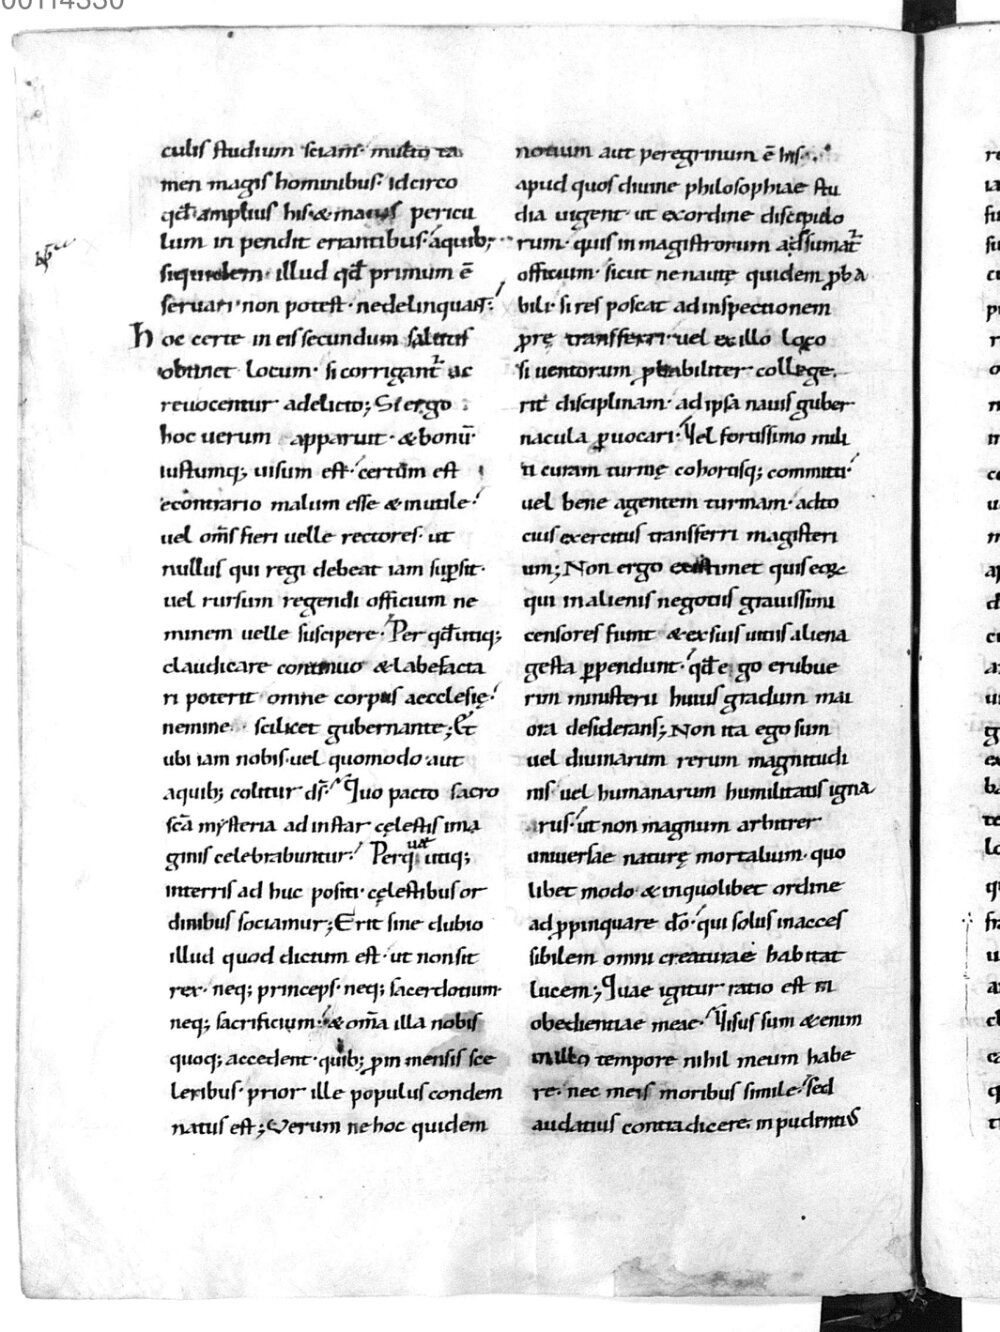 culis studium sciam· multo ta
men magis hominibus· Idcirco
qđ amplius his· & maius pericu
lum in pendit errantibus· aquib;
siquidem· illud qđ primum ē
seruari· non potest· nedelinquaꝉ·
hoc certe in eis secundum salutis
obtinet locum· si corrigant᷑ ac
reuocentur adelicto; Si ergo
hoc uerum apparuit· & bonū·
iustumq; uisum est· certum est
econtrario malum esse & inutile·
uel om̄s fieri uelle rectores· ut
nullus qui regi debeat iam suꝑsit·
uel rursum regendi officium ne
minem uelle suscipere· Per qđ utiq;
claudicare continuo & labefacta
ri poterit omne corpus aecclesię·
nemine scilicet gubernante; Et
ubi iam nobis· uel quomodo aut
aquib; colitur ds̄· Quo pacto sacro
sc̄a mysteria ad instar cęlestis ima
ginis celebrabuntur· Per quę utiq;
interris ad huc positi· cęlestibus or
dinibus sociamur; Erit sine dubio
illud quod dictum est· ut non sit
rex· neq; princeps· neq; sacerdotium·
neq; sacrificium· & om̄a illa nobis
quoq; accedent· quib; ꝓ in mensis sce
leribus· prior ille populus condem
natus est; Verum ne hoc quidem
notum aut peregrinum ē his
apud quos diuine philosophiae stu
dia uigent· ut ex ordine discipulo
rum· quis in magistrorum adsumat᷑
officium· sicut ne nautę quidem ꝓba
bili· si res poscat ad inspectionem
prę transferri· uel ex illo loco
si uentorum ꝓbabiliter college
rit disciplinam· ad ipsa nauis guber
nacula ꝓuocari· Vel fortissimo mili
ti curam turmę cohortisq; committi·
uel bene agentem turmam· ad to
cius exercitus transferri magisteri
um; Non ergo existimet quis eor
qui in alienis negotiis grauissimi
censores sunt & ex suis uitiis aliena
gesta ꝑpendunt· qđ ego erubue
rim ministerii huius gradum mai
ora desiderans; Non ita ego sum
uel diuinarum rerum magnitudi
nis· uel humanarum humilitatis igna
rus· ut non magnum arbitrer
uniuersae naturę mortalium· quo
libet modo & in quolibet ordine
ad ꝓpinquare dō· qui solus inacces
sibilem omni creaturae habitat
lucem; Quae igitur ratio est in
obedientiae meae· Visus sum & enim
multo tempore nihil meum habe
re· nec meis moribus simile· sed
audatius contradicere· in pudentius